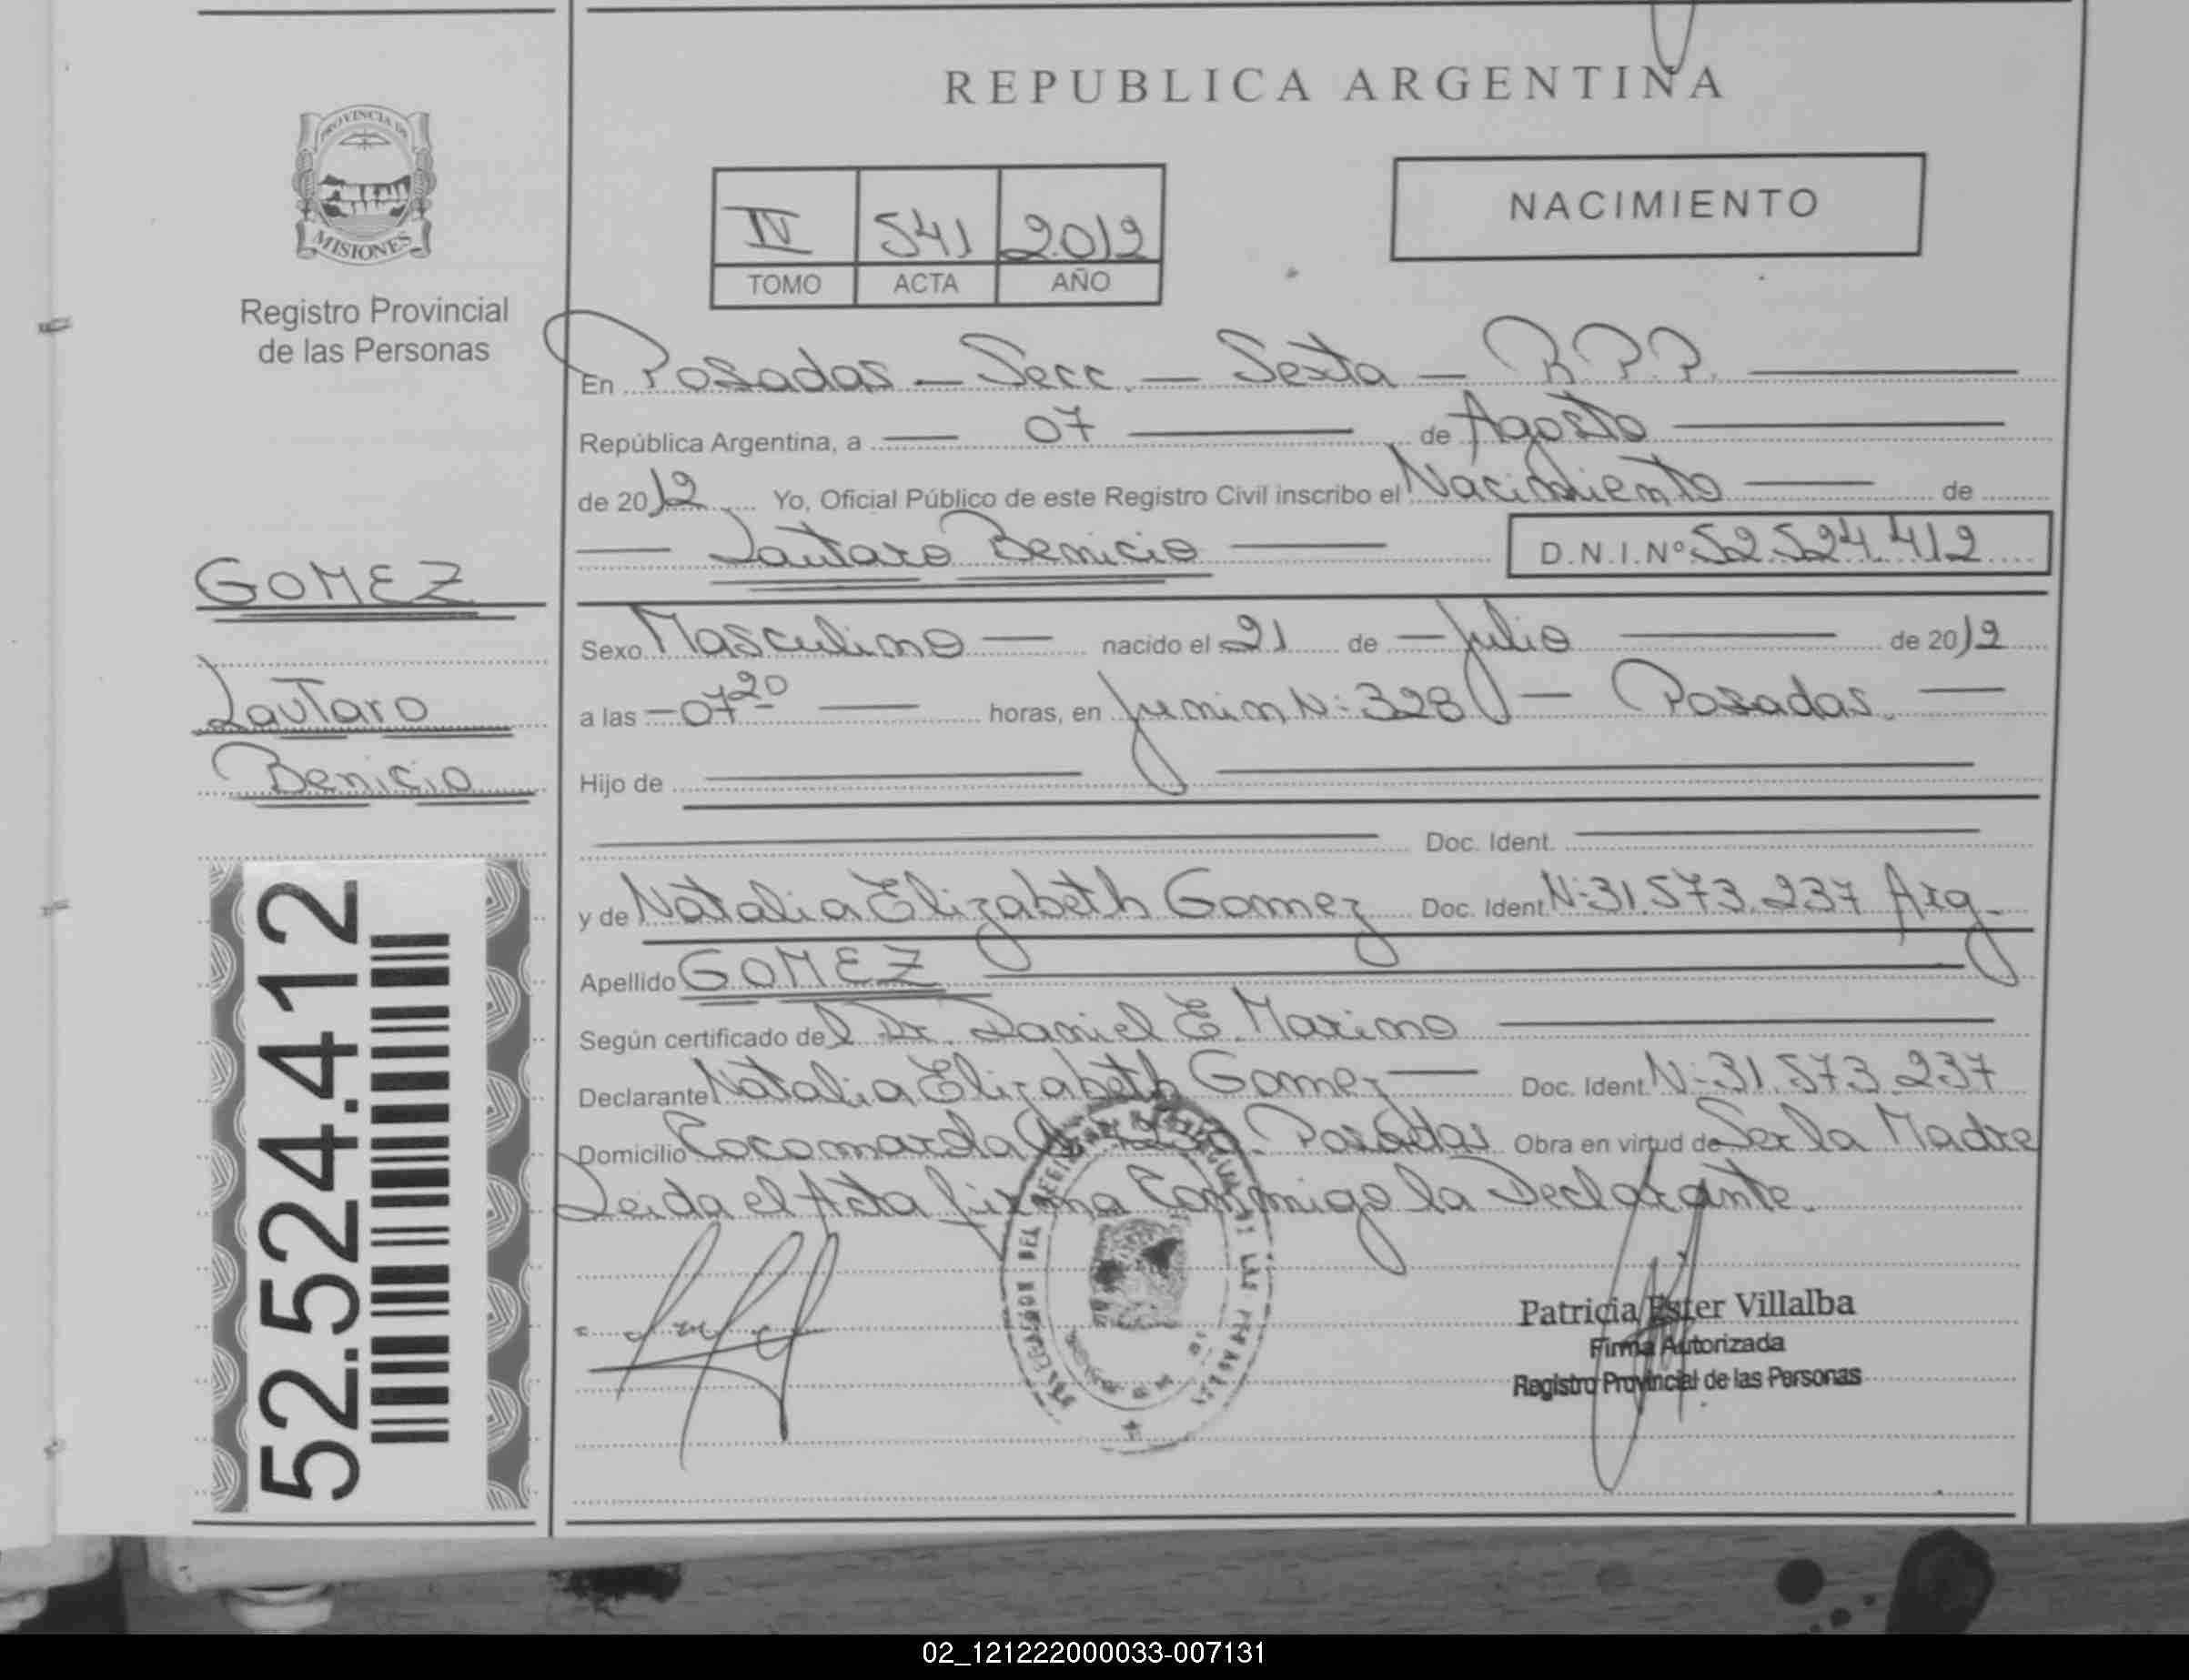 REPUBLICA ARGENTINA
PROVINCIA DE
MISIONES
Registro Provincial
de las Personas
NACIMIENTO
IV 541 2012
TOMO ACTA AÑO
En Posadas - Secc. - Sexta - R.P.P.
República Argentina, a 07 de Agosto
de 2012 Yo, Oficial Público de este Registro Civil inscribo el Nacimiento de
Lautaro Benicio D.N.I.Nº 52.524.412
GOMEZ
Lautaro
Benicio
Sexo Masculino nacido el 21 de Julio de 2012
a las 07 20 horas, en Junin N: 328 - Posadas.
Hijo de
Doc. Ident.
y de Natalia Elizabeth Gomez Doc. Ident. N: 31.573.237 Arg.
Apellido GOMEZ
Según certificado del Dr. Daniel E. Marino
Declarante Natalia Elizabeth Gomez Doc. Ident. N: 31.573.237
Domicilio Cocomarola Posadas Obra en virtud de Ser la Madre
Leida el Acta firma Conmigo la Declarante.
52.524.412
Patricia Ester Villalba
Firma Autorizada
Registro Provincial de las Personas
02_121222000033-007131